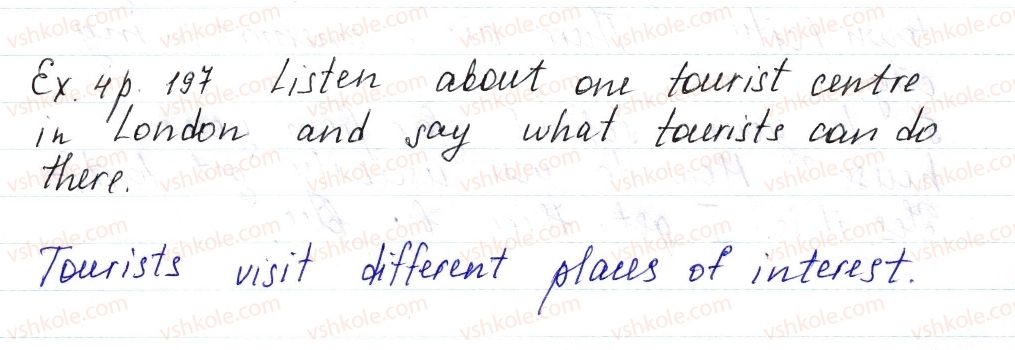 Ex. 4 p. 197 Listen about one tourist centre
in London and say what tourists can do
there.
Tourists visit different places of interest.